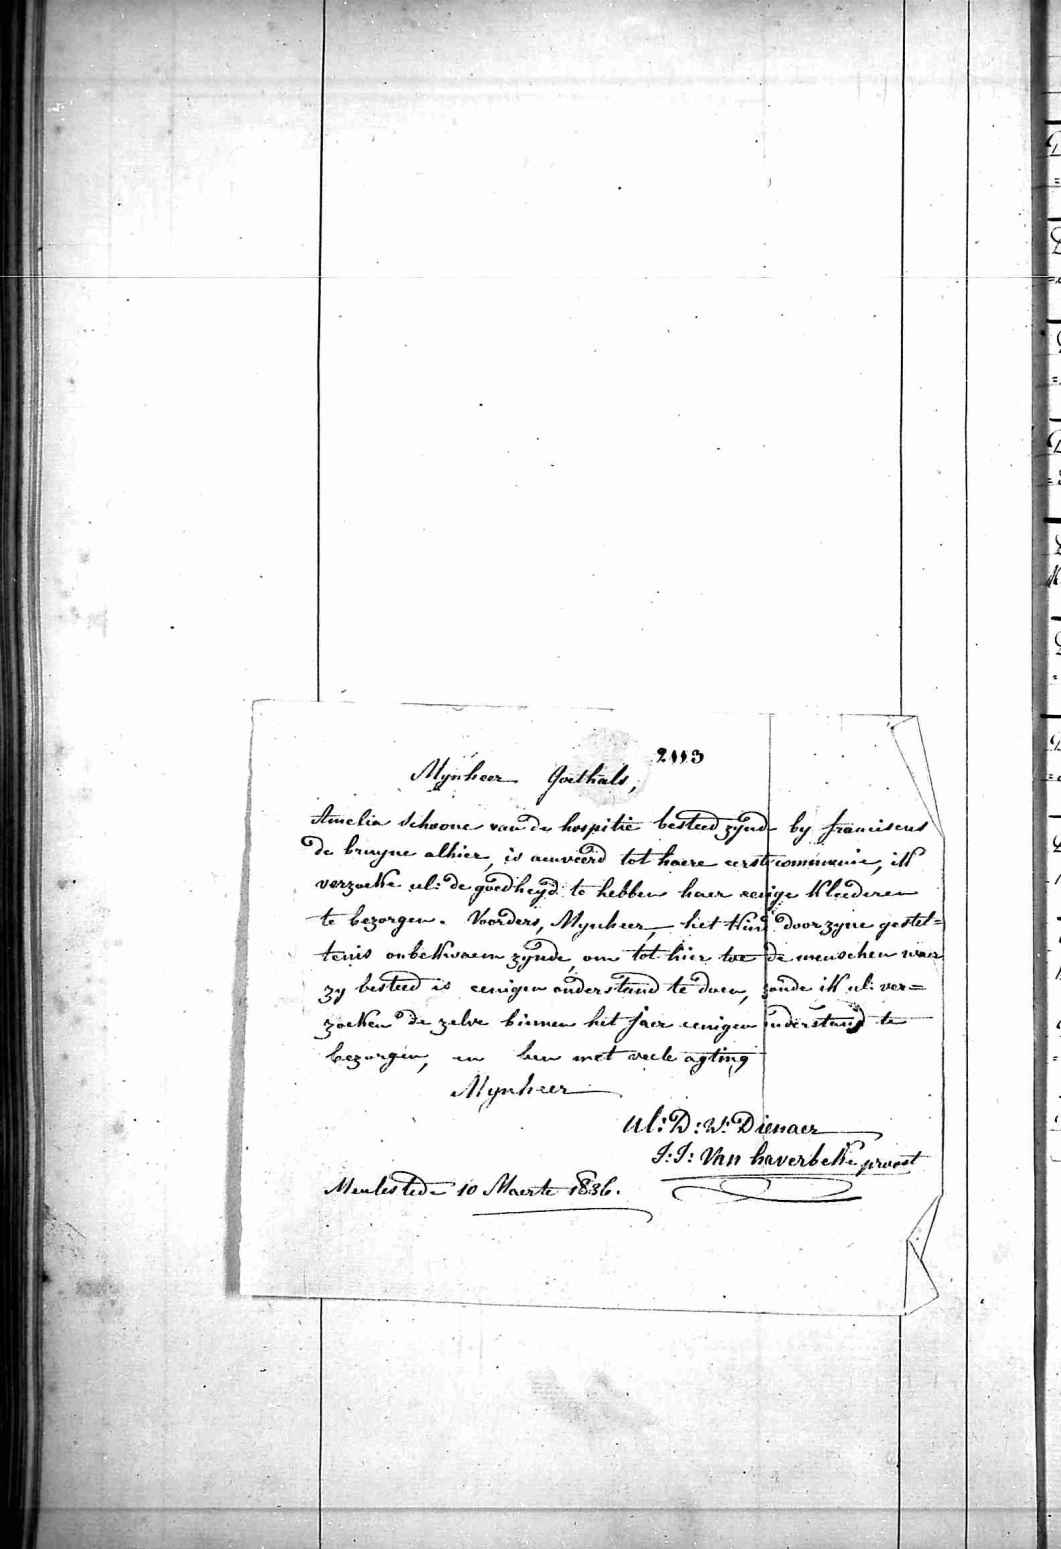 2113
Mynheer Goethals,
Amelia Schoone van de hospitie besteed zynde by franciscus
de bruyne alhier, is aenveerd tot haere eerste communie, ik
verzoeke ul: de goedheyd te hebben haer eenige kleederen
te bezorgen. Voorders, Mynheer, het kind door zyne gestel=
tenis onbekwaem zynde, om tot hier toe de menschen waer
zy besteed is eenigen onderstand te doen, zoude ik ul: ver=
zoeken de zelve binnen het jaer eenigen onderstand te
bezorgen, en ben met veele agting
Mynheer
Ul: D: W: Dienaer
J: J: Van haverbeke proost
Meulestede 10 Maerte 1836.